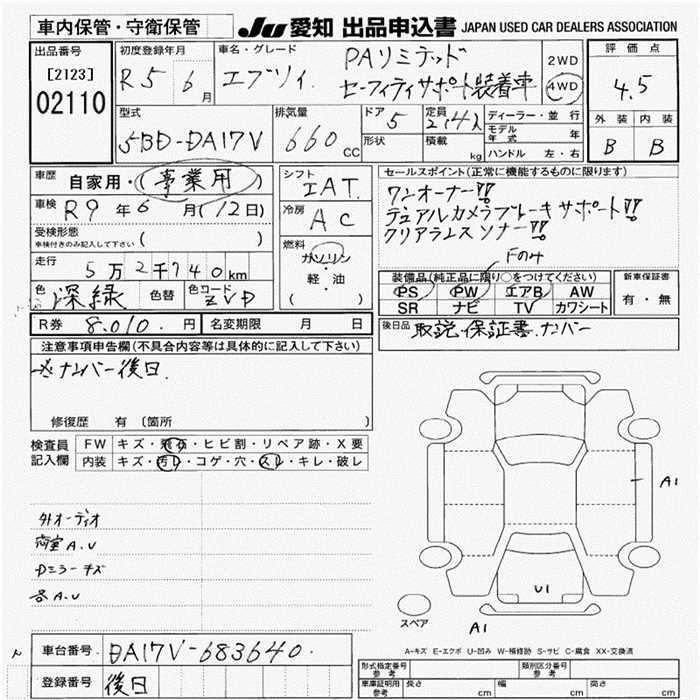 車内保管・守衛保管
JU 愛知 出品申込書 JAPAN USED CAR DEALERS ASSOCIATION
出品番号
[2123]
02110
初度登録年月
R5 6月
車名・グレード
エブリィ PAリミテッド
セーフィティサポート装着車
2WD
4WD
評価点
4.5
外装 内装
B B
型式
5BD-DA17V
排気量
660 CC
ドア 5
形状
定員 2/4人
積載 kg
ディーラー・並行
モデル年式 年
ハンドル 左・右
車歴 自家用・(事業用)
車検 R9年6月(12日)
受検形態
車検付きのみ記入して下さい ( )
走行 5万2千740km
色 深緑 色替 色コード ZVD
R券 8,010.円 名変期限 月 日
シフト
IAT
冷房
AC
燃料
ガソリン
・
軽油
( )
セールスポイント(正常に機能するものに限ります)
ワンオーナー!!
デュアルカメラブレーキサポート!!
クリアランスソナー!!
Fのみ
装備品(純正品に限り○をつけてください)
PS PW エアB AW
SR ナビ TV カワシート
新車保証書
有・無
後日品 取説・保証書.ナンバー
注意事項申告欄(不具合内容等は具体的に記入して下さい)
ナンバー後日.
修復歴 有 〔箇所 〕
検査員記入欄
FW キズ・飛石・ヒビ割・リペア跡・X要
内装 キズ・汚れ・コゲ・穴・スレ・キレ・破レ
外オーディオ
荷室A.U
Dミラーキズ
各A.U
A1
U1
スペア
A1
A-キズ E-エクボ U-凹み W-補修跡 S-サビ C-腐食 XX-交換済
車台番号 DA17V-683640.
登録番号 後日
形式指定番号 参考
類別区分番号 参考
車庫証明用 参考 長さ cm 幅 cm 高さ cm